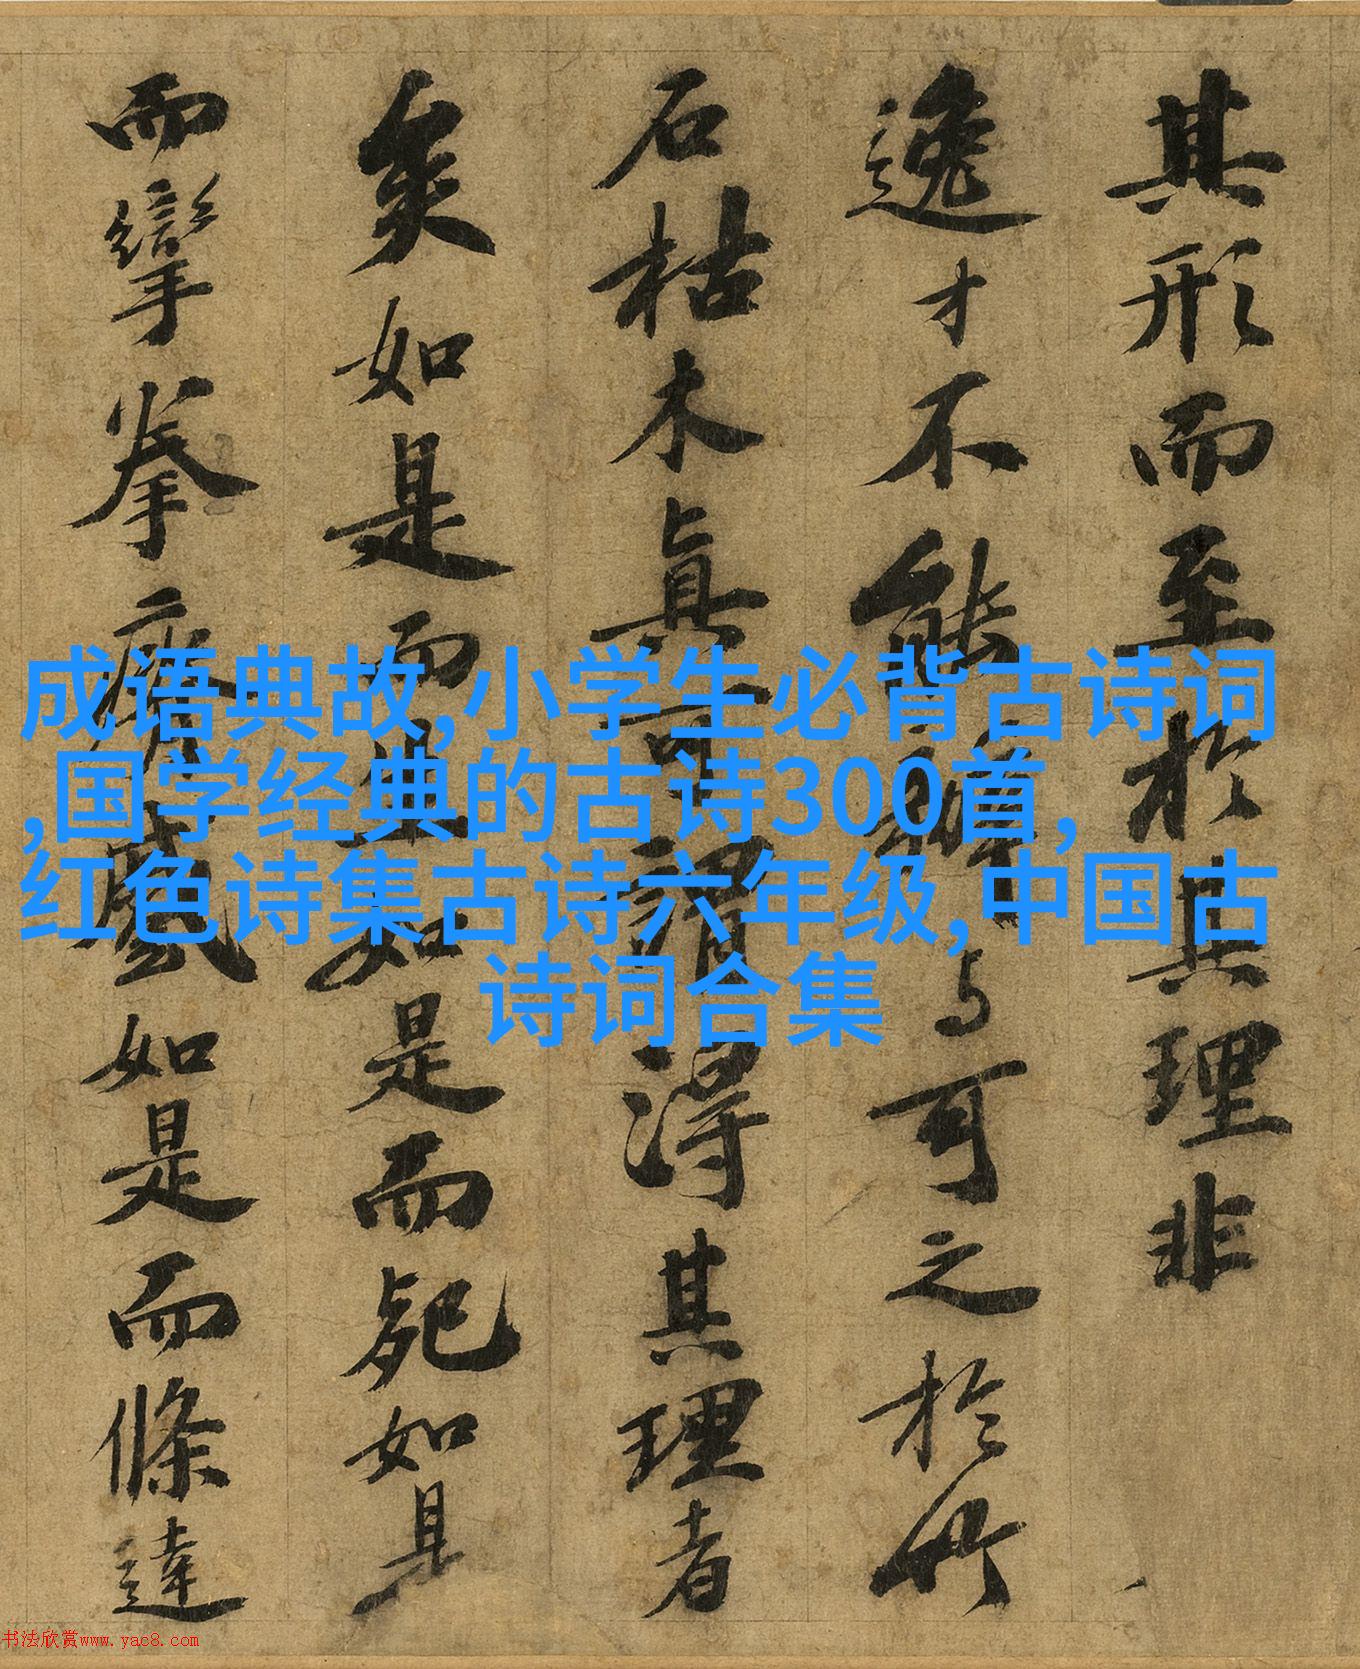 其形而至於其理非
逸才不能辨與可之於竹
石枯木真可謂得其理者
矣如是而生如是而死如是
而攣拳瘠蹙如是而條達
成语典故,小学生必背古诗词
,国学经典的古诗300首,
红色诗集古诗六年级,中国古
诗词合集
书法欣赏www.yac8.com